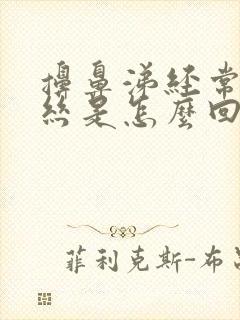 擤鼻涕経常
絲是怎麼回
菲利克斯-布